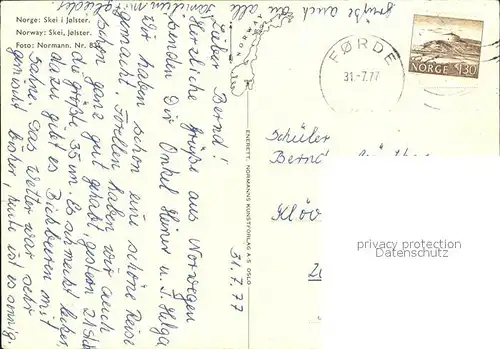 Norge: Skei i Jølster.
Norway: Skei, Jølster.
Foto: Normann. Nr. 8
NORGE
FØRDE
31.-7.77
NORGE 130
ENERETT: NORMANNS KUNSTFORLAG A/S OSLO
31.7.77
Lieber Bernd!
Herzliche Grüße aus Norwegen
senden Dir Onkel Heiner u. T. Helga
Wir haben schon eine schöne Reise
gemacht. Forellen haben wir auch
schon ganz gut gehabt, gestern 21 Stck
die größte 35 cm. Es schmeckt lecker,
dazu gibt es Bickbeeren mit
Sahne. Das Wetter war sehr
gemischt bisher, heute ist es sonnig.
grüße auch die alle
Schüler
Bernd
Klöv
privacy protection
Datenschutz